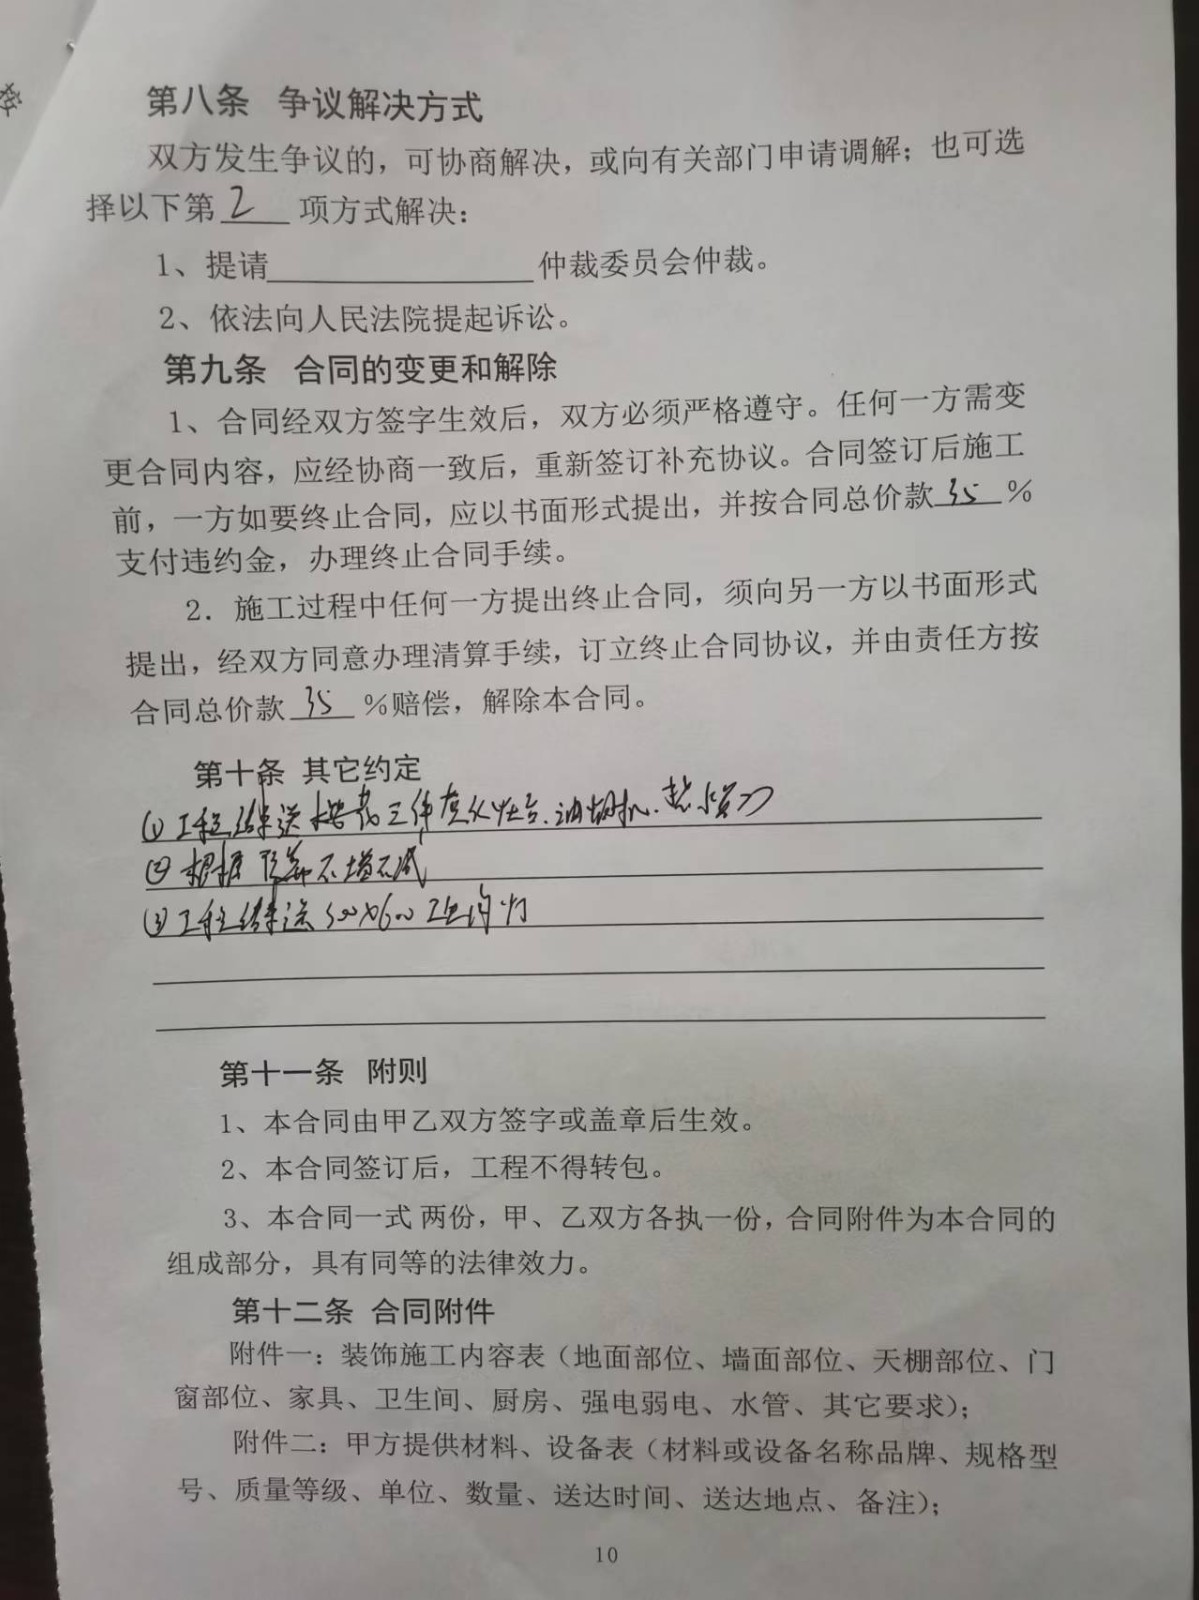 第八条 争议解决方式
双方发生争议的，可协商解决，或向有关部门申请调解；也可选
择以下第 2 项方式解决：
1、提请____________仲裁委员会仲裁。
2、依法向人民法院提起诉讼。
第九条 合同的变更和解除
1、合同经双方签字生效后，双方必须严格遵守。任何一方需变
更合同内容，应经协商一致后，重新签订补充协议。合同签订后施工
前，一方如要终止合同，应以书面形式提出，并按合同总价款 35 %
支付违约金，办理终止合同手续。
2．施工过程中任何一方提出终止合同，须向另一方以书面形式
提出，经双方同意办理清算手续，订立终止合同协议，并由责任方按
合同总价款 35 %赔偿，解除本合同。
第十条 其它约定
① 工程结束送 三件 灶台、油烟机、热水
② 根据预算不增不减
③ 工程结束送 300×600 灯
第十一条 附则
1、本合同由甲乙双方签字或盖章后生效。
2、本合同签订后，工程不得转包。
3、本合同一式 两份，甲、乙双方各执一份，合同附件为本合同的
组成部分，具有同等的法律效力。
第十二条 合同附件
附件一：装饰施工内容表（地面部位、墙面部位、天棚部位、门
窗部位、家具、卫生间、厨房、强电弱电、水管、其它要求）；
附件二：甲方提供材料、设备表（材料或设备名称品牌、规格型
号、质量等级、单位、数量、送达时间、送达地点、备注）；
10